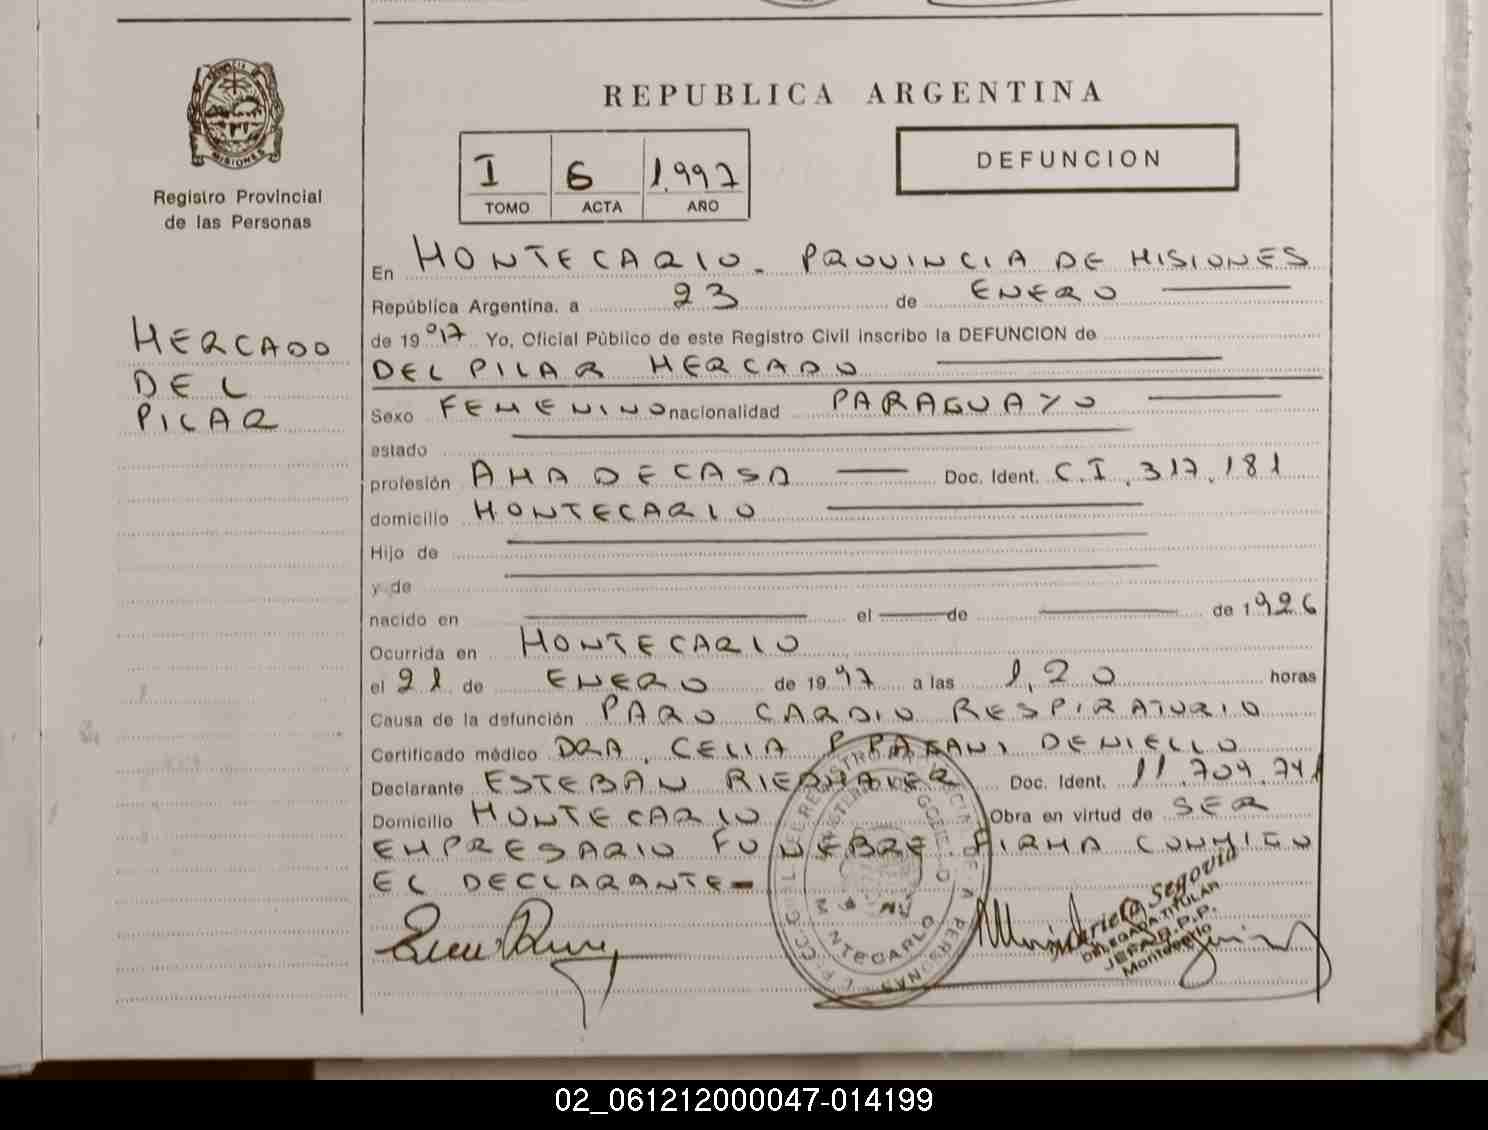 MISIONES
Registro Provincial
de las Personas
MERCADO
DEL
PILAR
REPUBLICA ARGENTINA
I 6 1.997
TOMO ACTA AÑO
DEFUNCION
En MONTECARLO - PROVINCIA DE MISIONES
República Argentina, a 23 de ENERO
de 19 97 Yo, Oficial Público de este Registro Civil inscribo la DEFUNCION de
DEL PILAR MERCADO
Sexo FEMENINO nacionalidad PARAGUAYO
estado
profesión AMA DE CASA Doc. Ident. C.I. 317.181
domicilio MONTECARLO
Hijo de
y de
nacido en el de de 1926
Ocurrida en MONTECARLO
el 21 de ENERO de 1997 a las 1,20 horas
Causa de la defunción PARO CARDIO RESPIRATORIO
Certificado médico DRA. CELIA P. PAGANI DENIELLO
Declarante ESTEBAN Doc. Ident. 11.709.741
Domicilio MONTECARLO Obra en virtud de SER
EMPRESARIO FUNEBRE. FIRMA CONMIGO
EL DECLARANTE-
MONTECARLO
Segovia
DELEGADA TITULAR
JEFA R.P.P.
Montecarlo
02_061212000047-014199